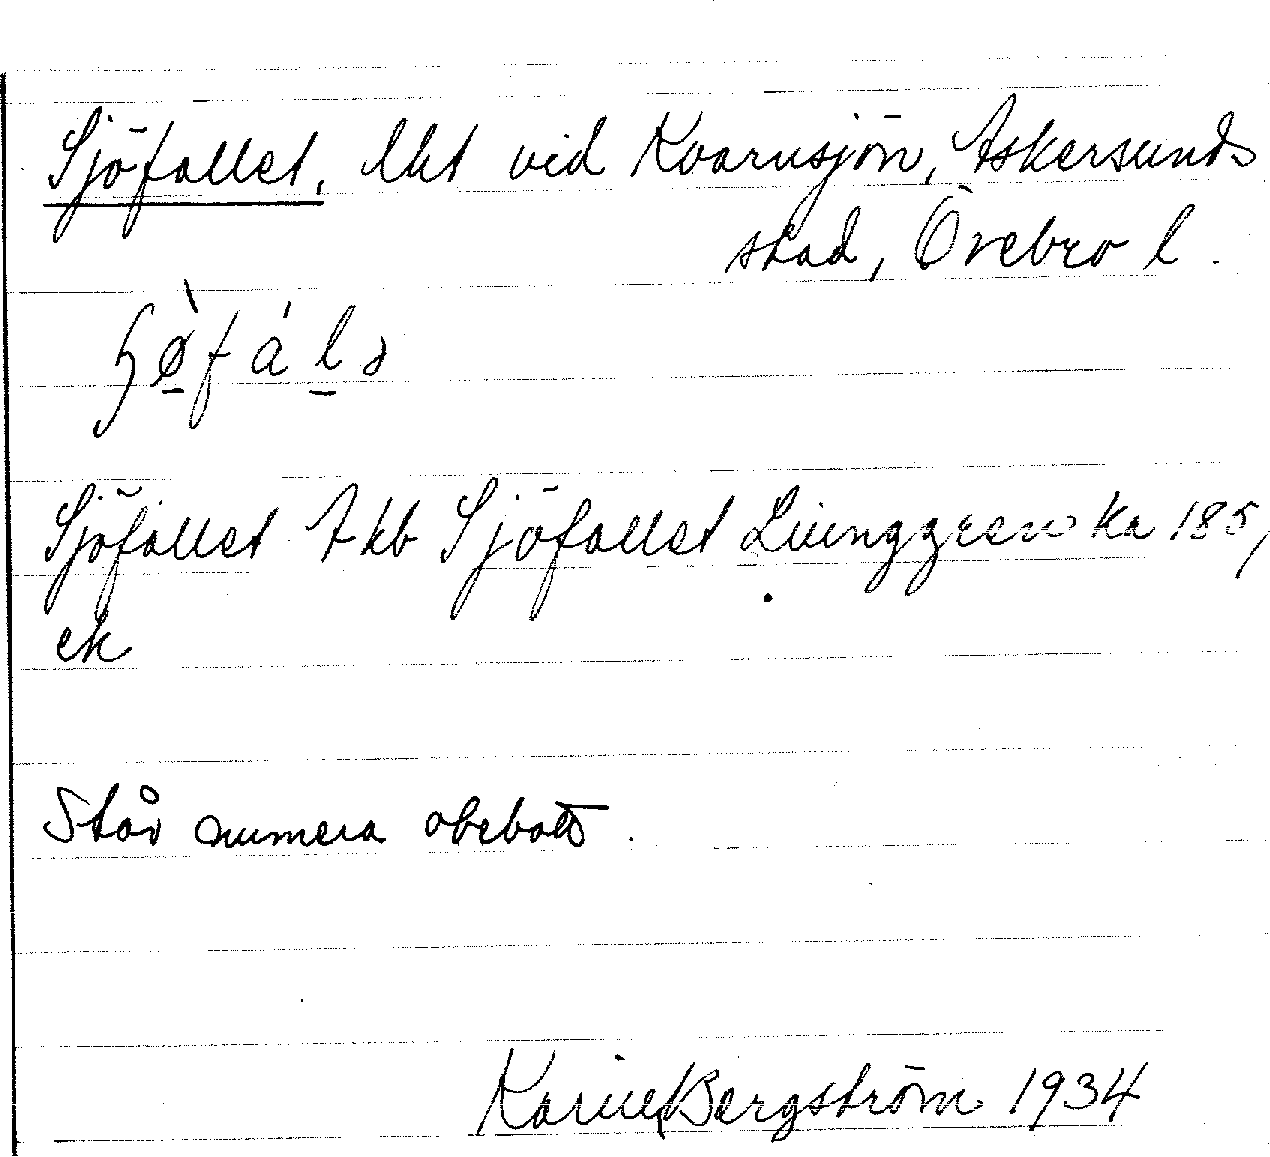 Sjöfallet, lht vid Kvarnsjön, Askersunds
stad, Örebro l.
Sjöfallet Akb Sjöfallet Liunggren ka 185,
ek
Står numera obebott.
Karin Bergström 1934